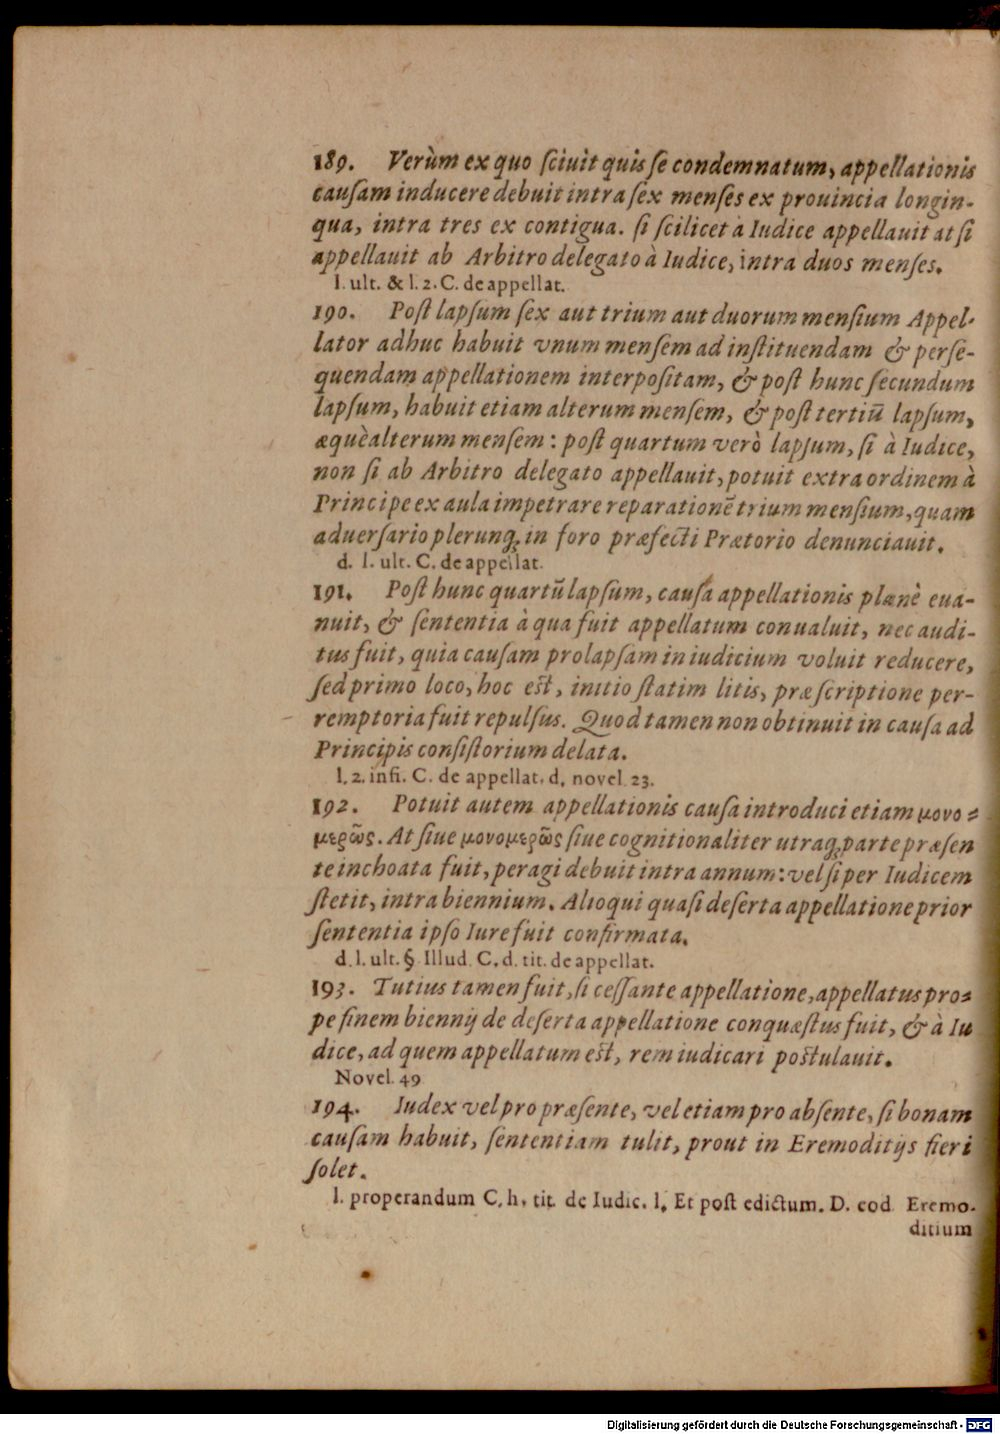 189. Verùm ex quo ſciuit quis ſe condemnatum, appellationis
cauſam inducere debuit intra ſex menſes ex prouincia longin-
qua, intra tres ex contigua. ſi ſcilicet à Iudice appellauit at ſi
appellauit ab Arbitro delegato à Iudice, intra duos menſes.
l. ult. & l. 2. C. de appellat.
190. Poſt lapſum ſex aut trium aut duorum menſium Appel-
lator adhuc habuit vnum menſem ad inſtituendam & perſe-
quendam appellationem interpoſitam, & poſt hunc ſecundum
lapſum, habuit etiam alterum menſem, & poſt tertiū lapſum,
æquè alterum menſem: poſt quartum verò lapſum, ſi à Iudice,
non ſi ab Arbitro delegato appellauit, potuit extra ordinem à
Principe ex aula impetrare reparationē trium menſium, quam
aduerſario plerunq; in foro præfecti Prætorio denunciauit.
d. l. ult. C. de appellat.
191. Poſt hunc quartū lapſum, cauſa appellationis planè eua-
nuit, & ſententia à qua fuit appellatum conualuit, nec audi-
tus fuit, quia cauſam prolapſam in iudicium voluit reducere,
ſed primo loco, hoc eſt, initio ſtatim litis, præſcriptione per-
remptoria fuit repulſus. Quod tamen non obtinuit in cauſa ad
Principis conſiſtorium delata.
l. 2. infi. C. de appellat. d. novel. 23.
192. Potuit autem appellationis cauſa introduci etiam μονο-
μερῶς. At ſiue μονομερῶς ſiue cognitionaliter utraq; parte præſen
te inchoata fuit, peragi debuit intra annum: vel ſi per Iudicem
ſtetit, intra biennium. Alioqui quaſi deſerta appellatione prior
ſententia ipſo Iure fuit confirmata.
d. l. ult. § Illud. C. d. tit. de appellat.
193. Tutius tamen fuit, ſi ceſſante appellatione, appellatus pro-
pe finem biennij de deſerta appellatione conquæſtus fuit, & à Iu
dice, ad quem appellatum eſt, rem iudicari poſtulauit.
Novel. 49
194. Iudex vel pro præſente, vel etiam pro abſente, ſi bonam
cauſam habuit, ſententiam tulit, prout in Eremoditijs fieri
ſolet.
l. properandum C. h. tit. de Iudic. l. Et poſt edictum. D. eod. Eremo-
ditium
Digitalisierung gefördert durch die Deutsche Forschungsgemeinschaft - DFG